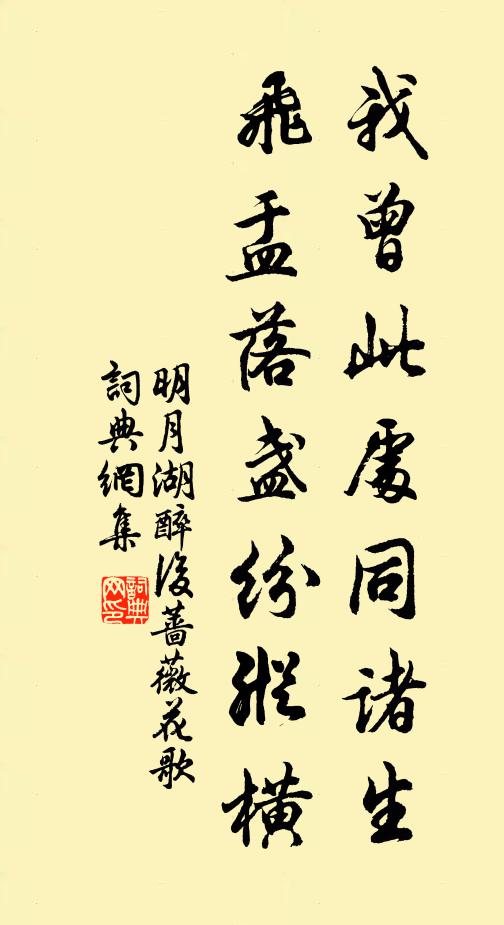 我曾此處同諸生
飛盂落盞紛縱橫
明月湖醉後薔薇花歌
詞典網集
詞典网印